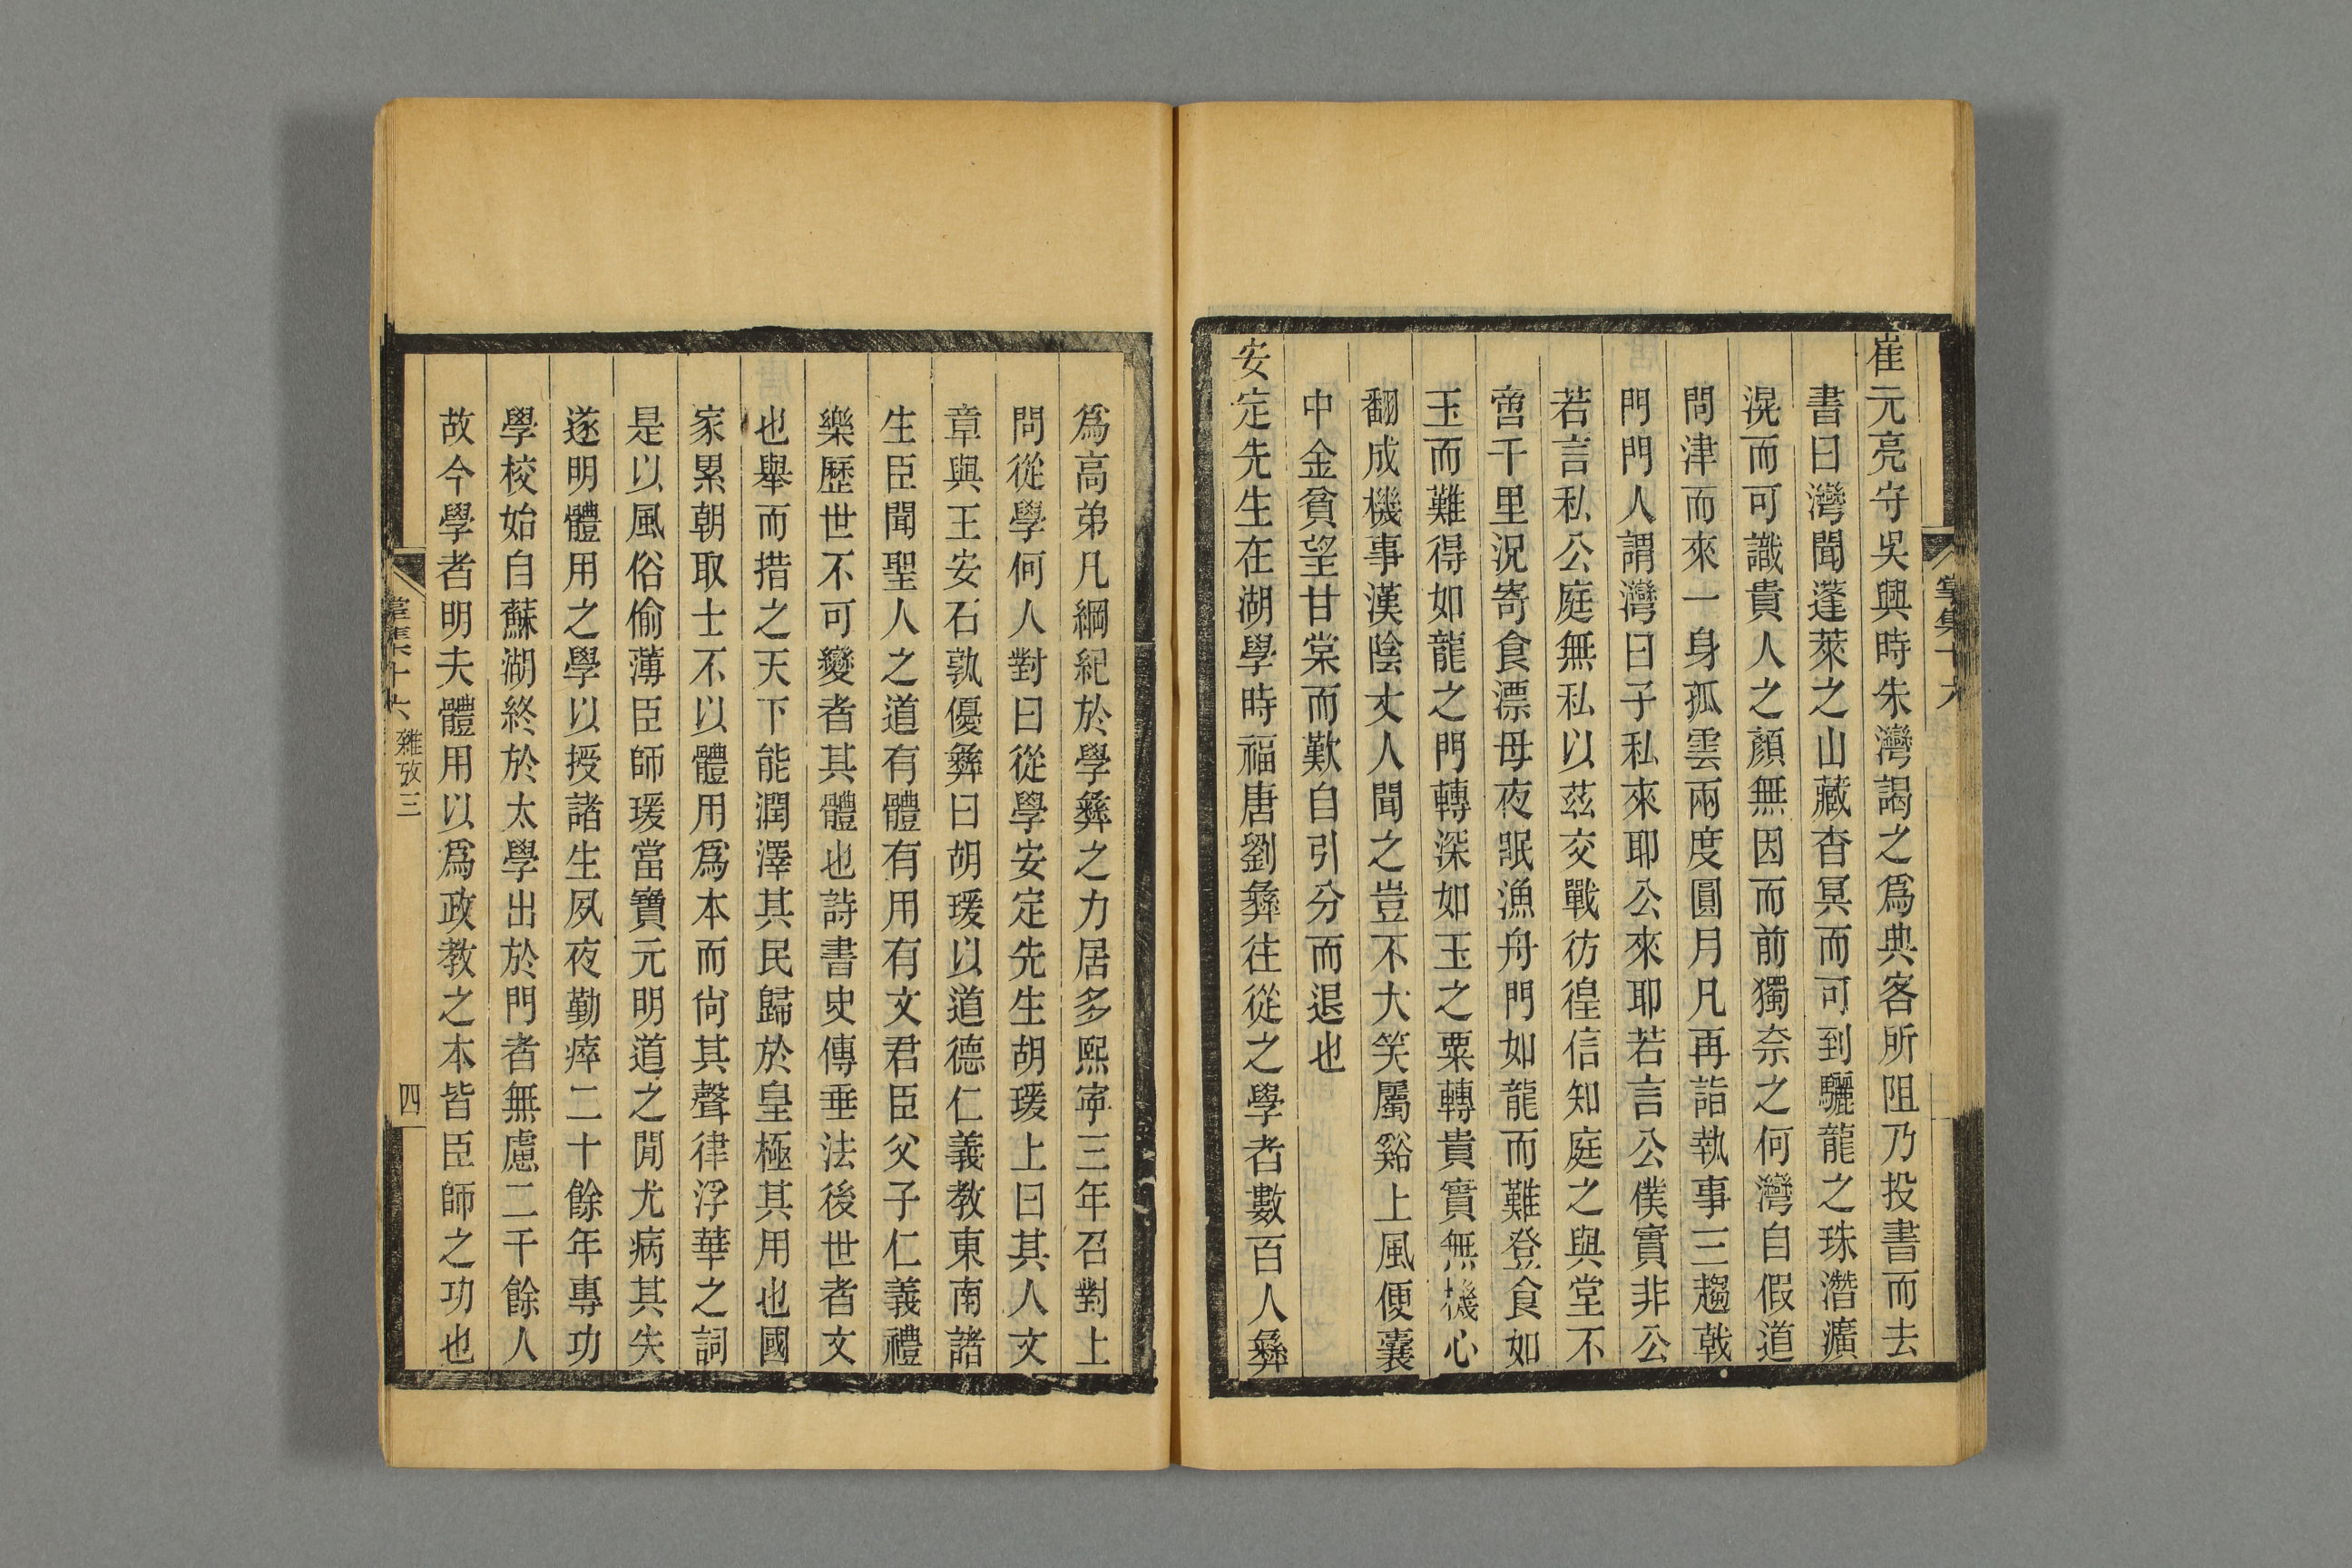 崔元亮守吳興時朱灣謁之爲典客所阻乃投書而去
書曰灣聞蓬萊之山藏杳冥而可到驪龍之珠潛瀇
滉而可識貴人之顏無因而前獨奈之何灣自假道
問津而來一身孤雲兩度圓月凡再詣執事三趨戟
門門人謂灣曰子私來耶公來耶若言公僕實非公
若言私公庭無私以茲交戰彷徨信知庭之與堂不
啻千里況寄食漂母夜眠漁舟門如龍而難登食如
玉而難得如龍之門轉深如玉之粟轉貴實無機心
翻成機事漢陰丈人聞之豈不大笑屬谿上風便囊
中金貧望甘棠而歎自引分而退也
安定先生在湖學時福唐劉彝往從之學者數百人彝
爲高弟凡綱紀於學彝之力居多熙寧三年召對上
問從學何人對曰從學安定先生胡瑗上曰其人文
章與王安石孰優彝曰胡瑗以道德仁義教東南諸
生臣聞聖人之道有體有用有文君臣父子仁義禮
樂歷世不可變者其體也詩書史傳垂法後世者文
也舉而措之天下能潤澤其民歸於皇極其用也國
家累朝取士不以體用爲本而尙其聲律浮華之詞
是以風俗偷薄臣師瑗當寶元明道之閒尤病其失
遂明體用之學以授諸生夙夜勤瘁二十餘年專功
學校始自蘇湖終於太學出於門者無慮二千餘人
故今學者明夫體用以爲政教之本皆臣師之功也
集十六 雜攷三
四